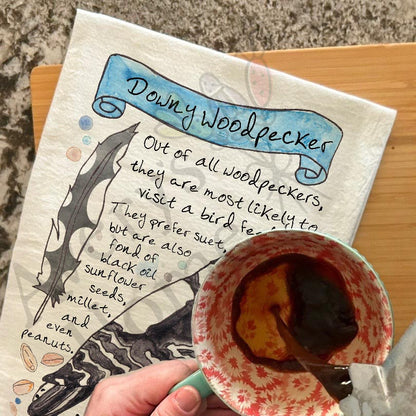 Downy Woodpecker
Out of all woodpeckers,
they are most likely to
visit a bird
They prefer suet,
but are also
fond of
black oil
sunflower
seeds,
millet,
and
even
peanuts.